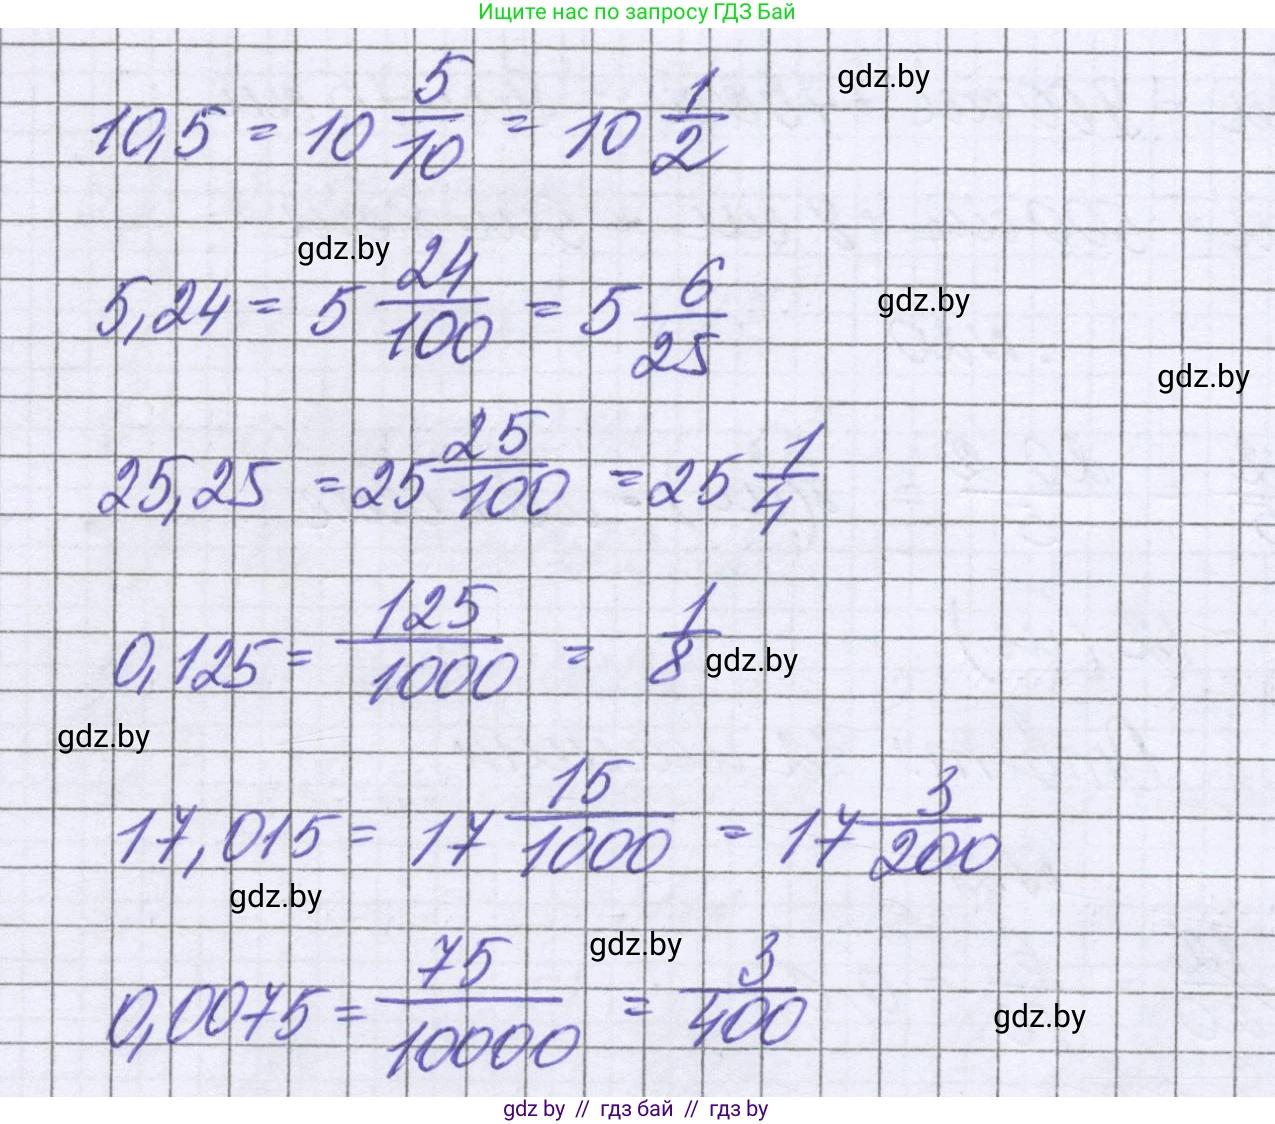 Ищите нас по запросу ГДЗ Бай
gdz.by
10,5 = 10 5/10 = 10 1/2
gdz.by
5,24 = 5 24/100 = 5 6/25
gdz.by
gdz.by
25,25 = 25 25/100 = 25 1/4
0,125 = 125/1000 = 1/8
gdz.by
gdz.by
17,015 = 17 15/1000 = 17 3/200
gdz.by
gdz.by
0,0075 = 75/10000 = 3/400
gdz.by
gdz by // гдз бай // гдз by